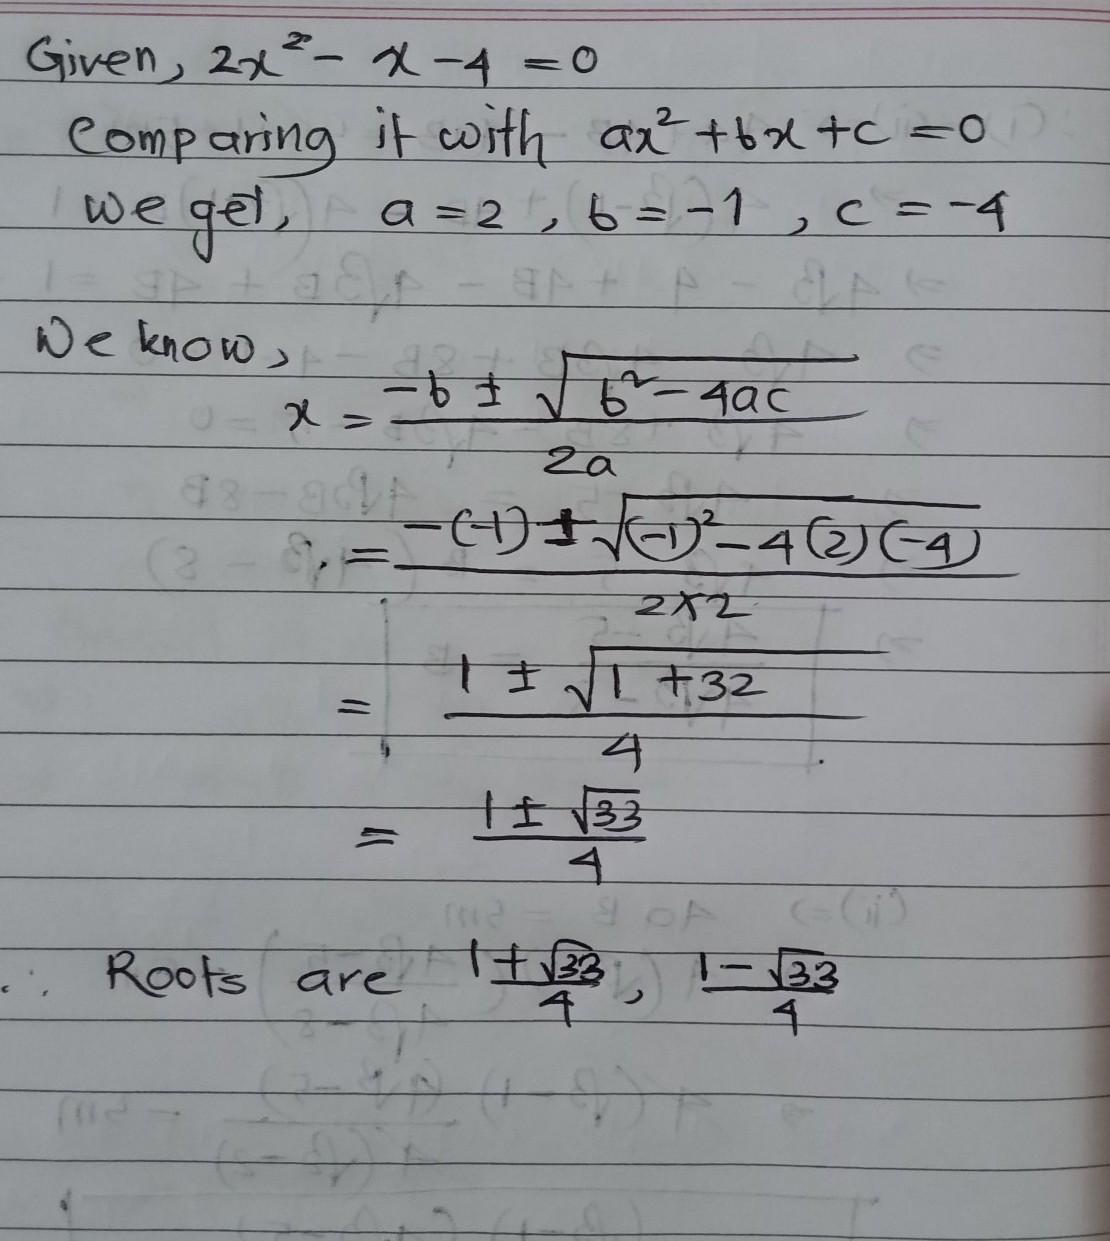 Given, 2x² - x - 4 = 0
Comparing it with ax² + bx + c = 0
we get, a = 2, b = -1, c = -4
We know,
x = (-b ± √(b² - 4ac)) / 2a
= (-(-1) ± √((-1)² - 4(2)(-4))) / 2×2
= (1 ± √(1 + 32)) / 4
= (1 ± √33) / 4
∴ Roots are (1 + √33) / 4, (1 - √33) / 4